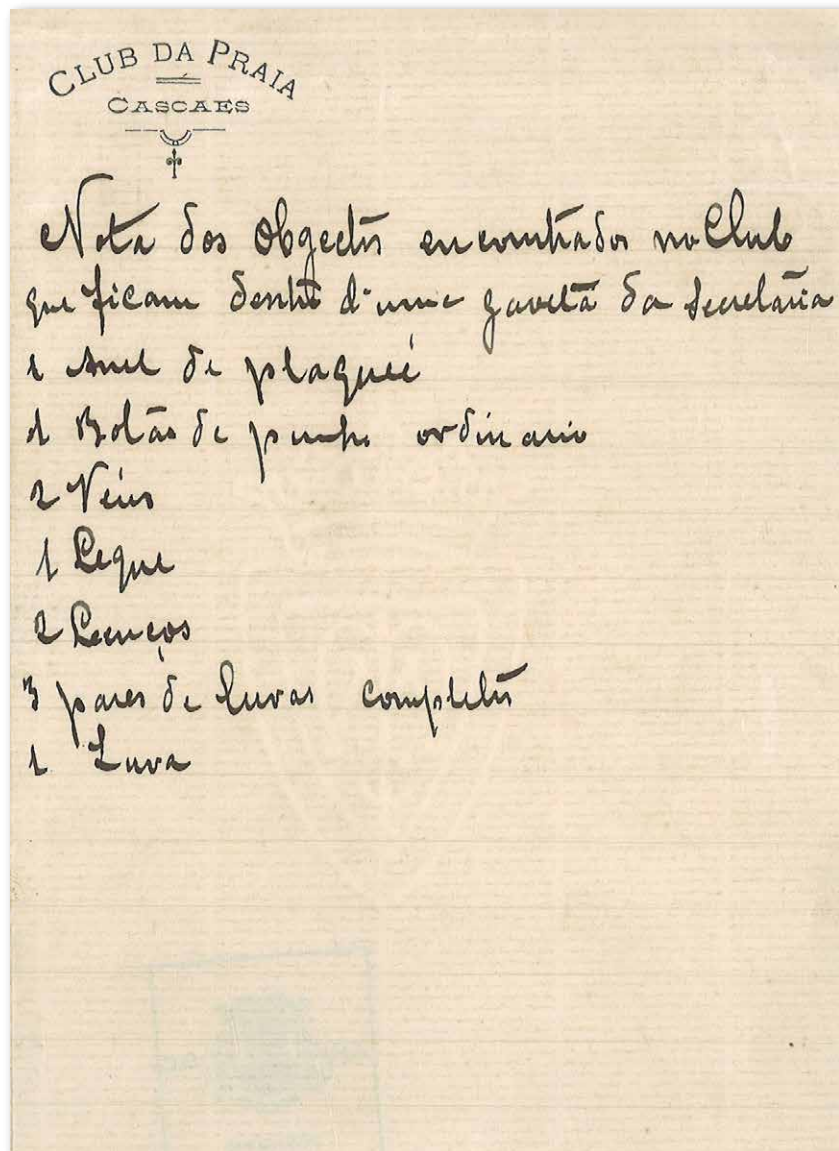 CLUB DA PRAIA
CASCAES
Nota dos Obgectos encontrados no Club
que ficam dentro d'uma gaveta da Secretaria
1 Anel de plaqueé
1 Botão de punho ordinario
2 Véus
1 Leque
2 Lenços
3 pares de luvas completos
1 Luva